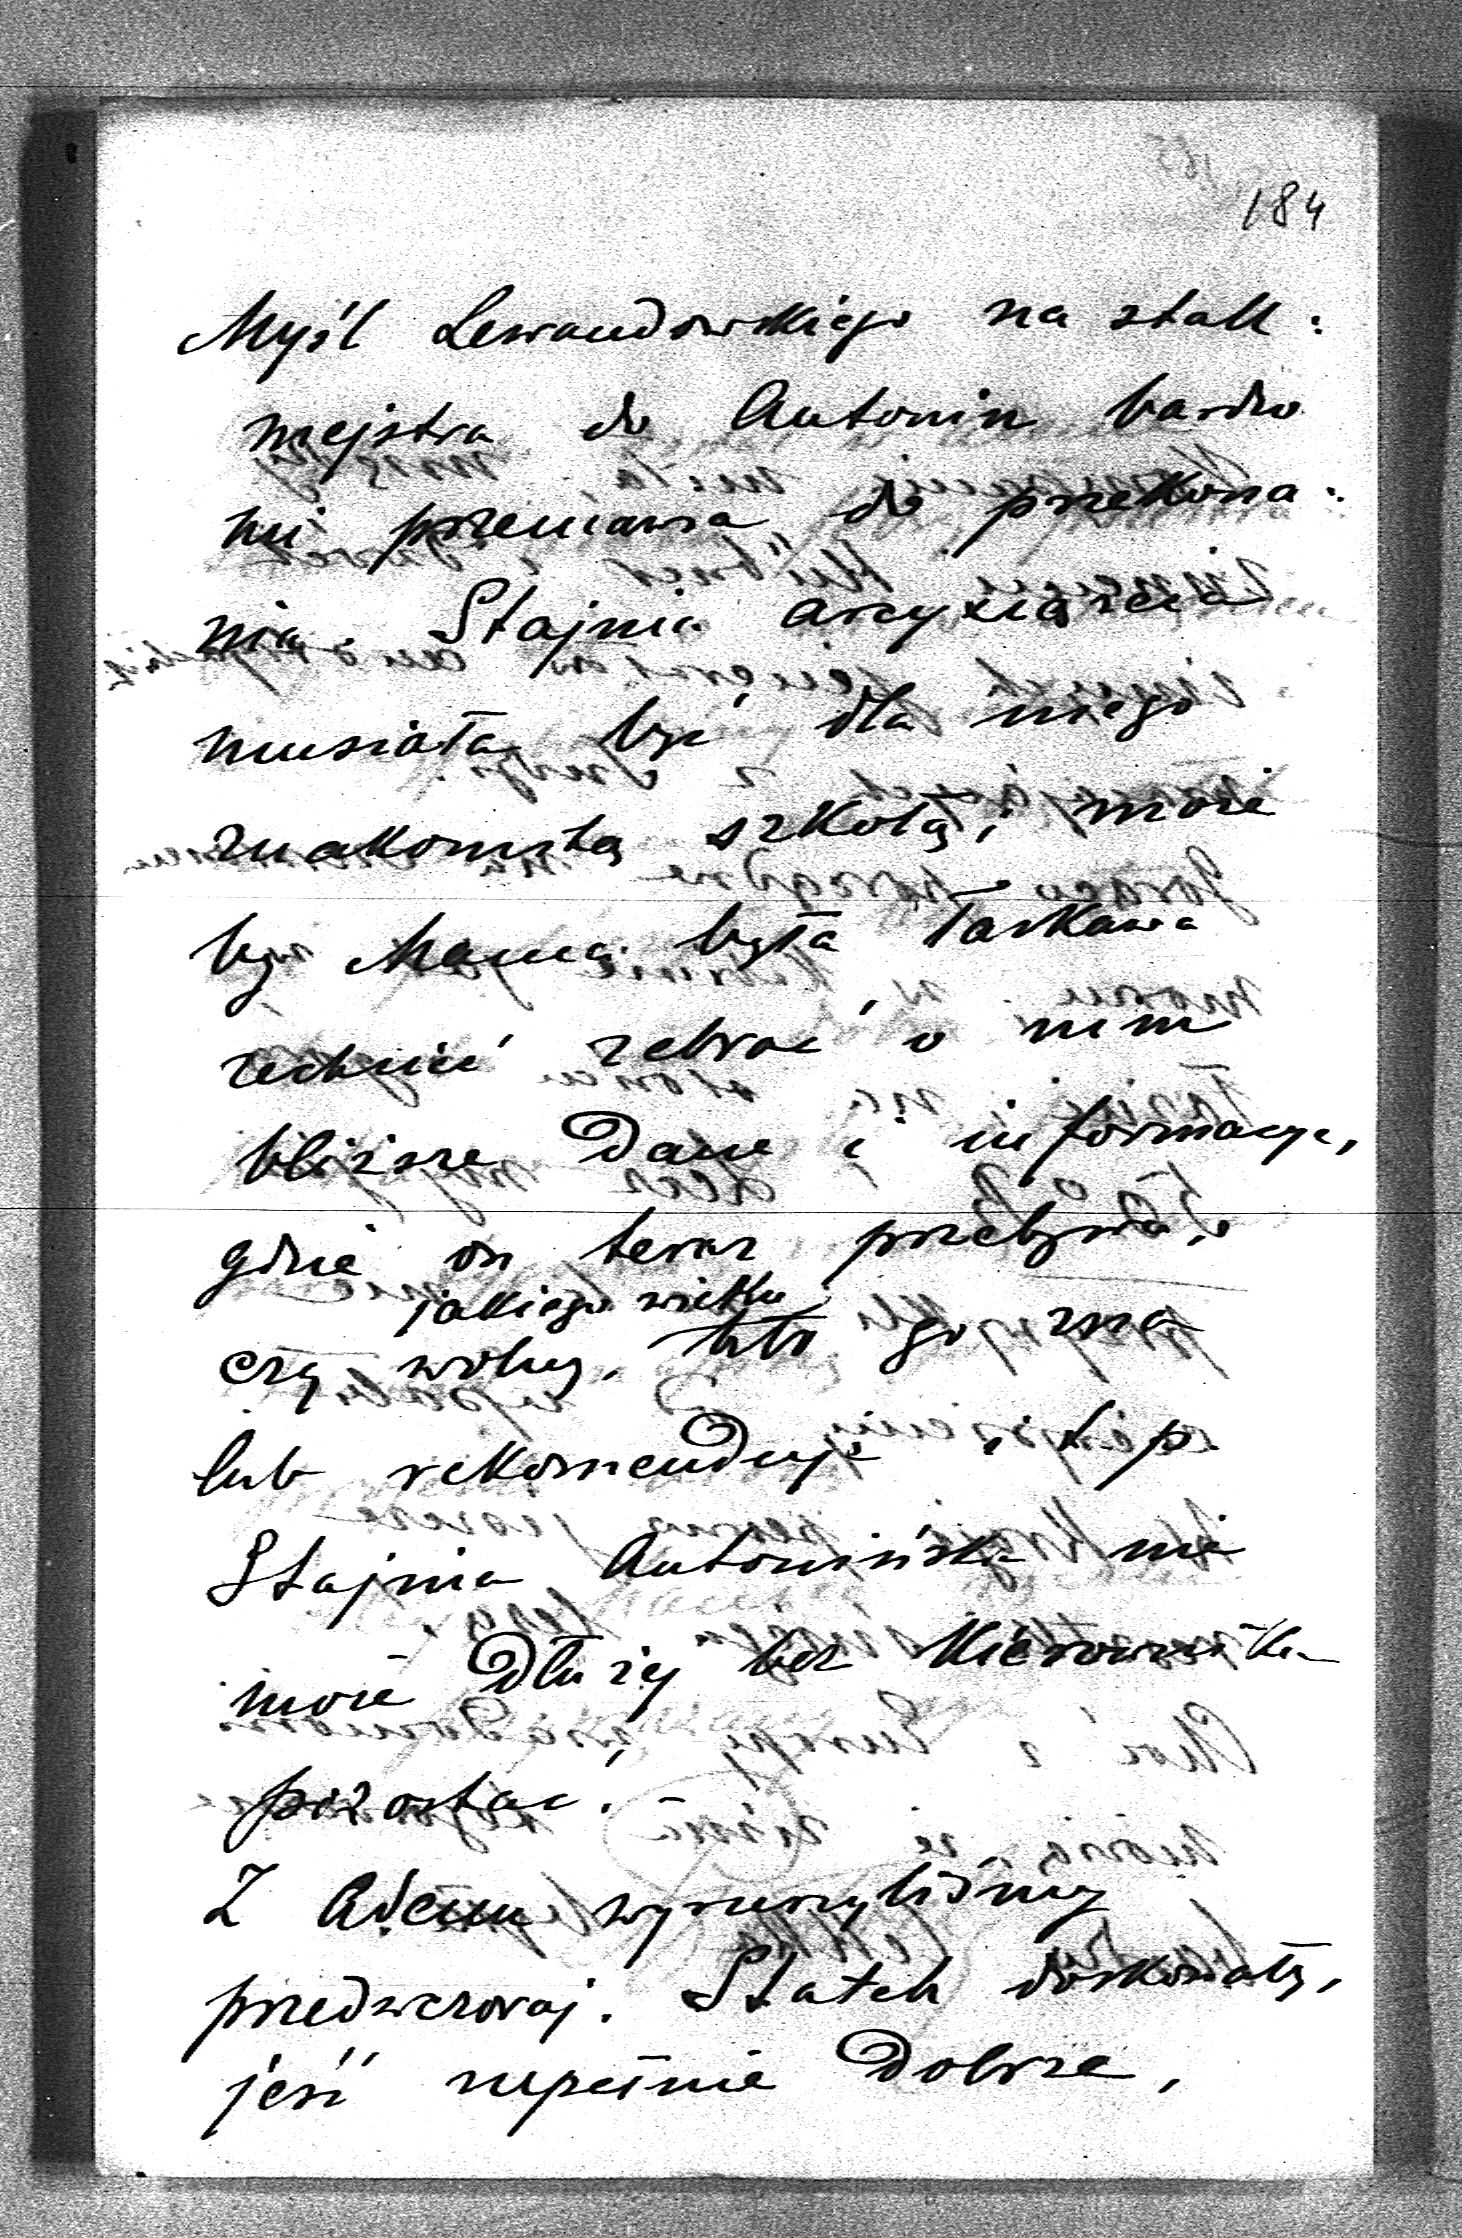 184
Myśl Lewandowskiego na stall:
mejstra do Antonin bardzo
mi przemawia do przekona:
nia. Stajnia arcyxiążęcia
musiała być dla niego
znakomitą szkołą, i może
by Mama była łaskawa
zechcieć zebrać o nim
bliższe dane i informacye,
gdzie on teraz przebywa,
jakiego wieku
czy wolny, kto go zna
lub rekomenduje i t p.
Stajnia Antonińska nie
może dłużej bez kierownika
pozostać.
Z Adenu wyruszyliśmy
przedwczoraj. Statek doskonały,
jeść zupełnie dobrze,